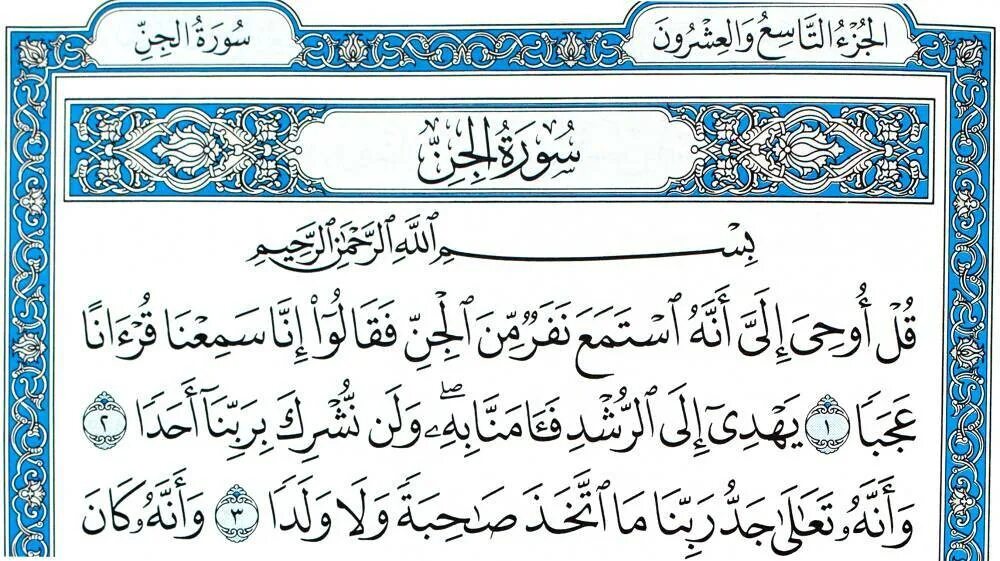 الجُزْءُ التَّاسِعُ وَالعِشْرُونَ
سُورَةُ الجِنِّ
سُورَةُ الجِنِّ
بِسْمِ ٱللَّهِ ٱلرَّحْمَٰنِ ٱلرَّحِيمِ
قُلْ أُوحِىَ إِلَىَّ أَنَّهُ ٱسْتَمَعَ نَفَرٌ مِّنَ ٱلْجِنِّ فَقَالُوٓا۟ إِنَّا سَمِعْنَا قُرْءَانًا
عَجَبًا ١ يَهْدِىٓ إِلَى ٱلرُّشْدِ فَـَٔامَنَّا بِهِۦ ۖ وَلَن نُّشْرِكَ بِرَبِّنَآ أَحَدًا ٢
وَأَنَّهُۥ تَعَٰلَىٰ جَدُّ رَبِّنَا مَا ٱتَّخَذَ صَٰحِبَةً وَلَا وَلَدًا ٣ وَأَنَّهُۥ كَانَ